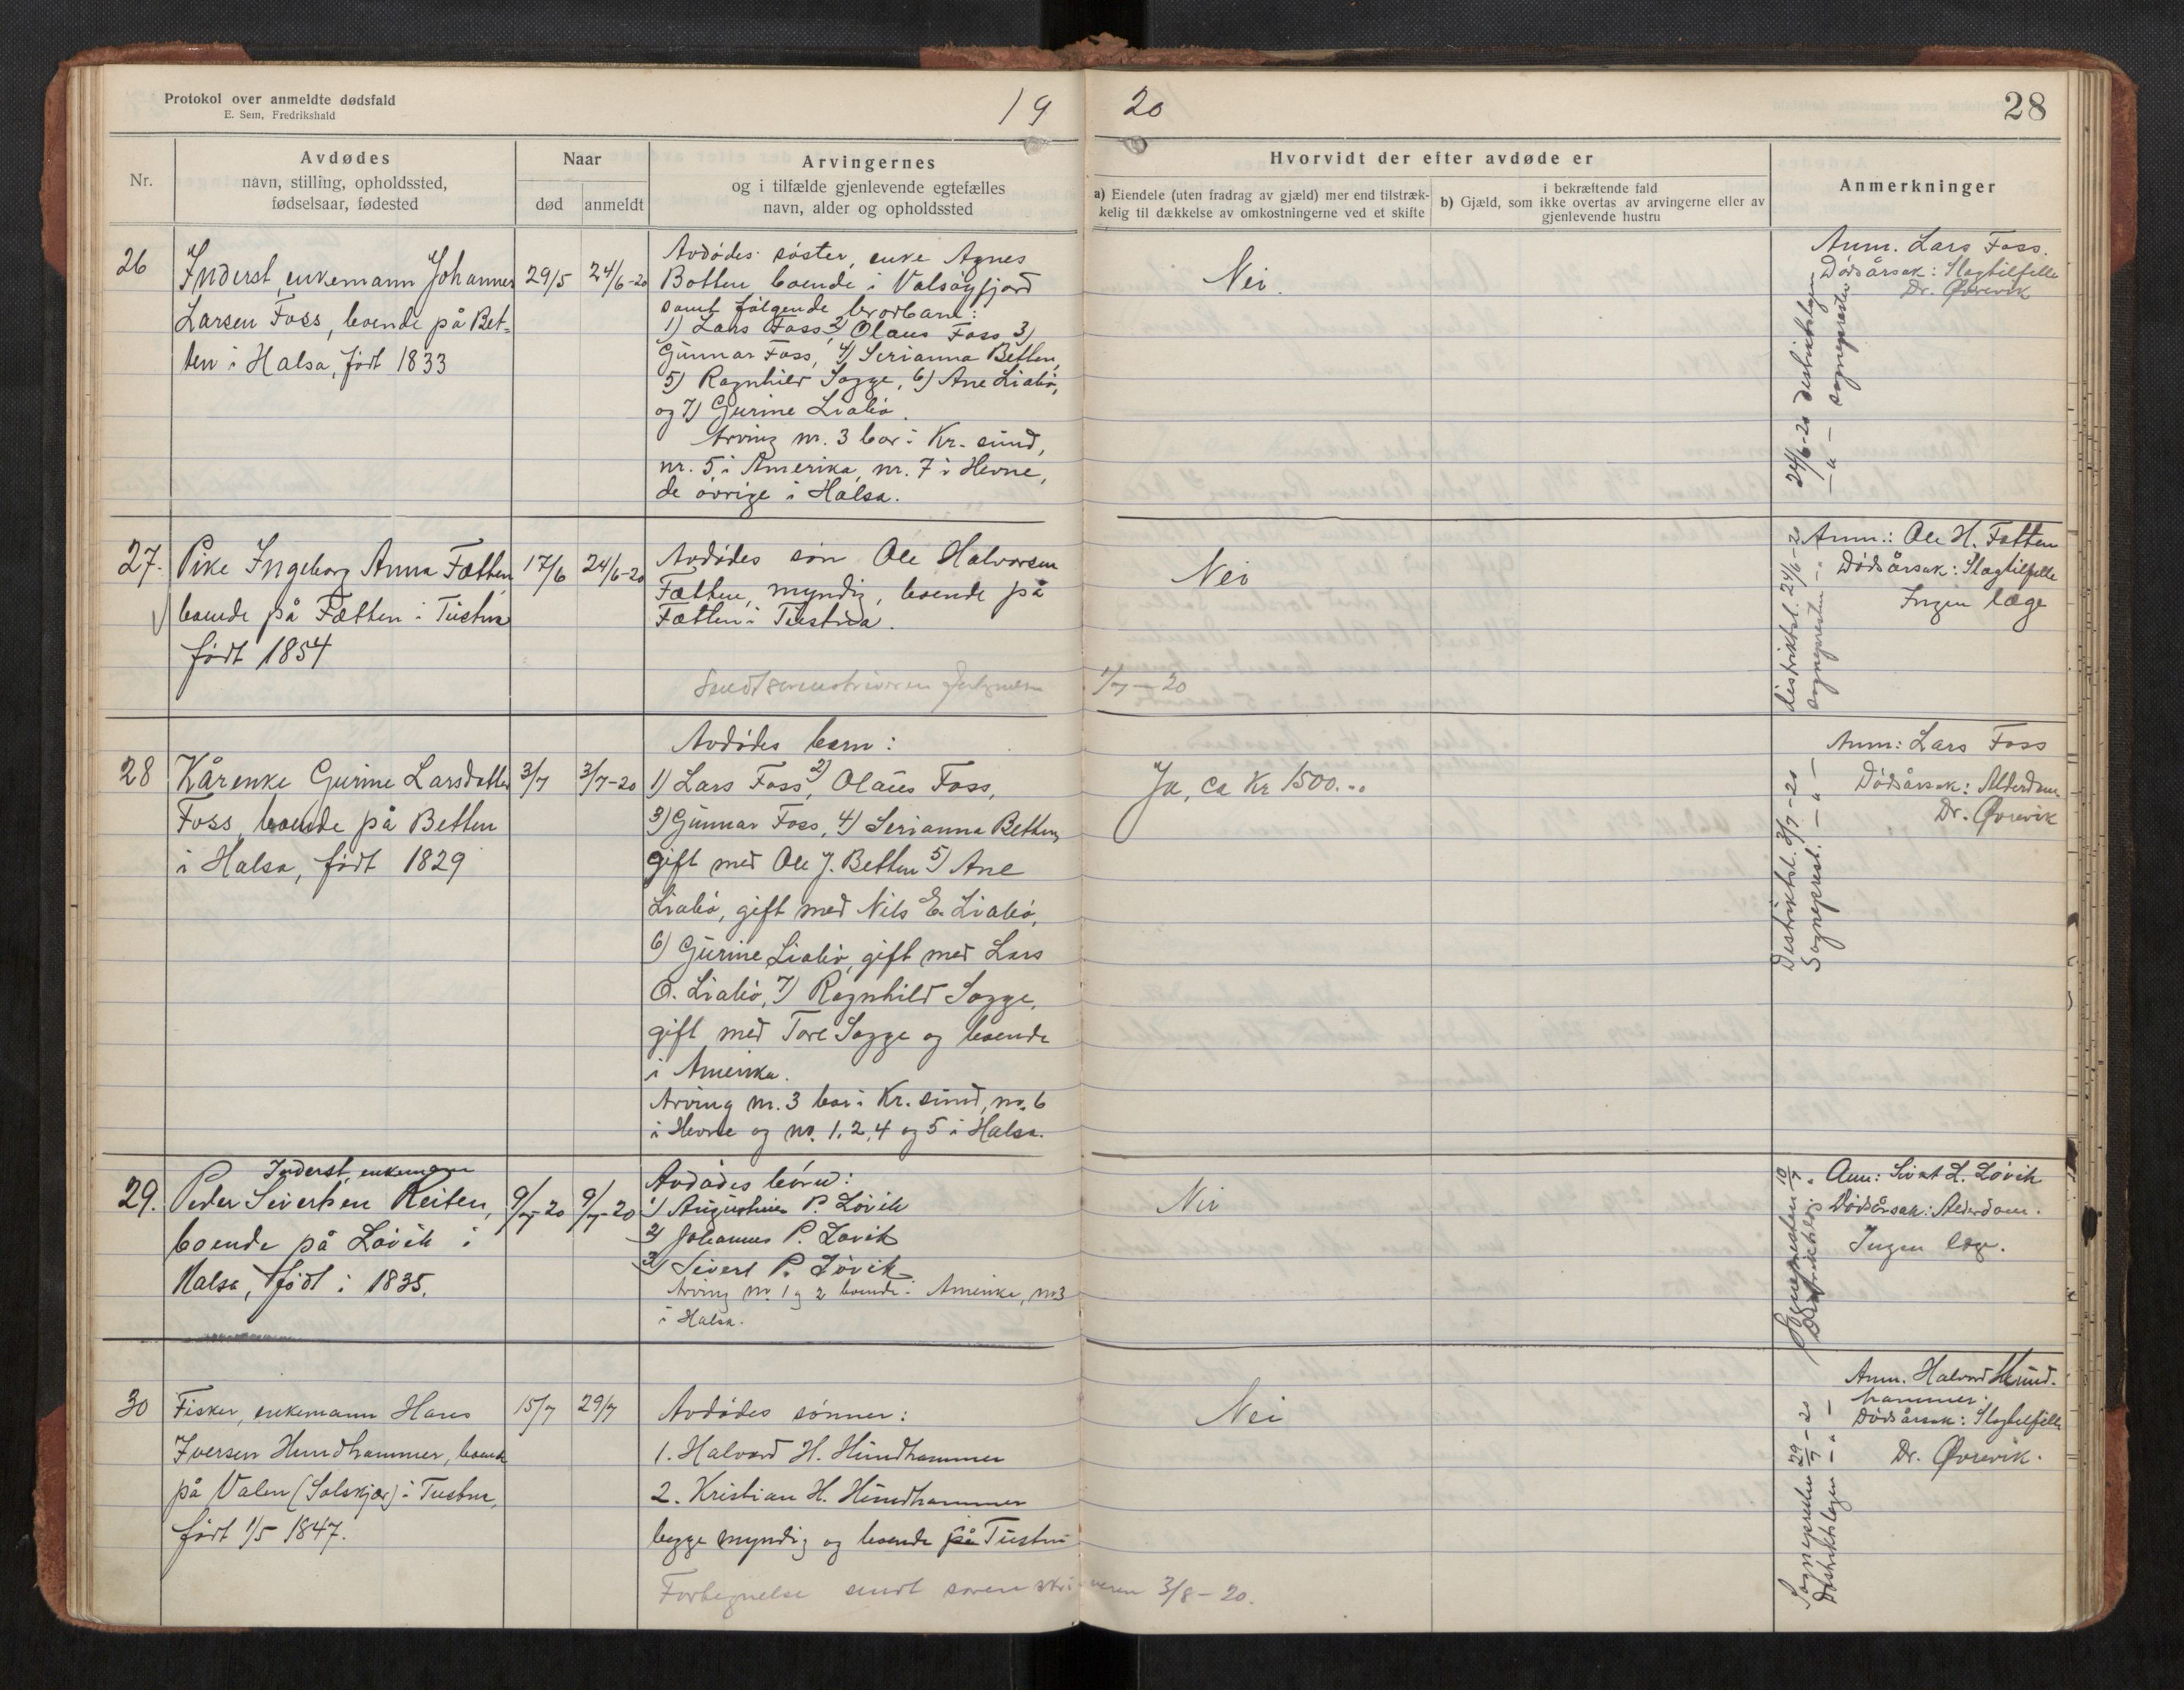 Protokol over anmeldte dødsfald
E. Sem, Fredrikshald
19
20
28
Nr.
Avdødes
navn, stilling, opholdssted,
fødselsaar, fødested
Naar
død
anmeldt
Arvingernes
og i tilfælde gjenlevende egtefælles
navn, alder og opholdssted
Hvorvidt der efter avdøde er
a) Eiendele (uten fradrag av gjæld) mer end tilstræk-
kelig til dækkelse av omkostningerne ved et skifte
i bekræftende fald
b) Gjæld, som ikke overtas av arvingerne eller av
gjenlevende hustru
Anmerkninger
26
Inderst, enkemann Johannes
Larsen Foss, boende på Bet-
ten i Halsa, født 1833
29/5
24/6-20
Avdødes søster, enke Agnes
Botten boende i Valsøyfjord
samt følgende brorbarn:
1) Lars Foss, 2) Olaus Foss 3)
Gunnar Foss, 4) Serianna Betten,
5) Ragnhild Sogge, 6) Ane Liabø,
og 7) Gurine Liabø.
Arving nr. 3 bor i Kr. sund,
nr. 5 i Amerika, nr. 7 i Hevne,
de øvrige i Halsa.
Nei.
24/6-20 distriktslegen
— " — sognepresten
Anm. Lars Foss.
Dødsårsak: Slagtilfelle
Dr. Øvrevik
27.
Pike Ingeborg Anna Fætten,
boende på Fætten i Tustna
født 1854
17/6
24/6-20
Avdødes søn Ole Halvorsen
Fætten, myndig, boende på
Fætten i Tustna.
Sendt sorenskriveren
1/7-20
Nei
distriktsl. 24/6-20
sognepresten - " -
Anm.: Ole H. Fætten
Dødsårsak: Slagtilfelle
Ingen læge
28
Kårenke Gurine Larsdatter
Foss, boende på Betten
i Halsa, født 1829
3/7
3/7-20
Avdødes barn:
1) Lars Foss, 2) Olaus Foss,
3) Gunnar Foss, 4) Serianna Betten,
gift med Ole J. Betten 5) Ane
Liabø, gift med Nils E. Liabø,
6) Gurine Liabø, gift med Lars
O. Liabø, 7) Ragnhild Sogge,
gift med Tore Sogge og boende
i Amerika.
Arving nr. 3 bor i Kr. sund, nr. 6
i Hevne og nr. 1, 2, 4 og 5 i Halsa.
Ja, ca Kr 1500.-
Distriktsl. 3/7-20
Sogneprest. - " -
Anm: Lars Foss
Dødsårsak: Alderdom
Dr. Øvrevik
29.
Inderst, enkemann
Peder Sivertsen Reiten,
boende på Løvik i
Halsa, født i 1835.
9/7-20
9/7-20
Avdødes børn:
1) Augustinus P. Løvik
2) Johannes P. Løvik
3) Sivert P. Løvik
Arving nr. 1 og 2 boende i Amerika, nr 3
i Halsa.
Nei
Sognepresten 10/7
Distriktslæg
Anm: Sivert L. Løvik
Dødsårsak: Alderdom.
Ingen læge.
30
Fisker, enkemann Hans
Iversen Hundhammer, boende
på Valen (Solskjær) i Tustna,
født 1/5 1847.
15/7
29/7
Avdødes sønner:
1. Halvard H. Hundhammer
2. Kristian H. Hundhammer
begge myndig og boende på Tustna
Fortegnelse sendt sorenskriveren 3/8-20.
Nei
Sognepresten 29/7-20
Distriktslegen — " —
Anm. Halvard Hund-
hammer.
Dødsårsak: Slagtilfelle
Dr. Øvrevik.